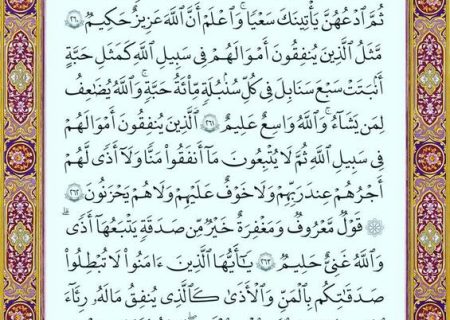 ثُمَّ ٱدْعُهُنَّ يَأْتِينَكَ سَعْيًا ۚ وَٱعْلَمْ أَنَّ ٱللَّهَ عَزِيزٌ حَكِيمٌ ٢٦٠
مَّثَلُ ٱلَّذِينَ يُنفِقُونَ أَمْوَٰلَهُمْ فِى سَبِيلِ ٱللَّهِ كَمَثَلِ حَبَّةٍ
أَنۢبَتَتْ سَبْعَ سَنَابِلَ فِى كُلِّ سُنۢبُلَةٍ مِّا۟ئَةُ حَبَّةٍ ۗ وَٱللَّهُ يُضَٰعِفُ
لِمَن يَشَآءُ ۗ وَٱللَّهُ وَٰسِعٌ عَلِيمٌ ٢٦١ ٱلَّذِينَ يُنفِقُونَ أَمْوَٰلَهُمْ
فِى سَبِيلِ ٱللَّهِ ثُمَّ لَا يُتْبِعُونَ مَآ أَنفَقُوا۟ مَنًّا وَلَآ أَذًى ۙ لَّهُمْ
أَجْرُهُمْ عِندَ رَبِّهِمْ وَلَا خَوْفٌ عَلَيْهِمْ وَلَا هُمْ يَحْزَنُونَ ٢٦٢
۞ قَوْلٌ مَّعْرُوفٌ وَمَغْفِرَةٌ خَيْرٌ مِّن صَدَقَةٍ يَتْبَعُهَآ أَذًى ۗ
وَٱللَّهُ غَنِىٌّ حَلِيمٌ ٢٦٣ يَٰٓأَيُّهَا ٱلَّذِينَ ءَامَنُوا۟ لَا تُبْطِلُوا۟
صَدَقَٰتِكُم بِٱلْمَنِّ وَٱلْأَذَىٰ كَٱلَّذِى يُنفِقُ مَالَهُۥ رِئَآءَ